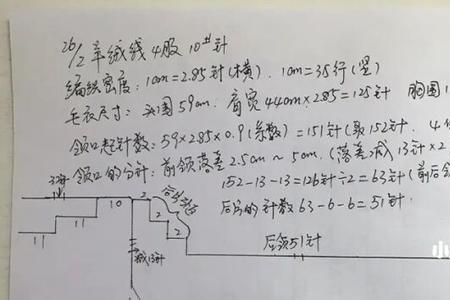 26/2 羊绒线 4股 10#针
编织密度: 10m=2.85针(横). 10m=38行(竖)
毛衣尺寸: 头围59cm. 肩宽44cm×2.85=125针 胸围1
领口起针数: 59×2.85×0.9(系数)=151针(取152针.
领口的分针: 前领落差2.5cm~5cm.(落差减13针×2
152-13-13=126针÷2=63针(前后领
后片的针数 63-6-6=51针.
10
2
2
2
11
11
减13针
后领51针